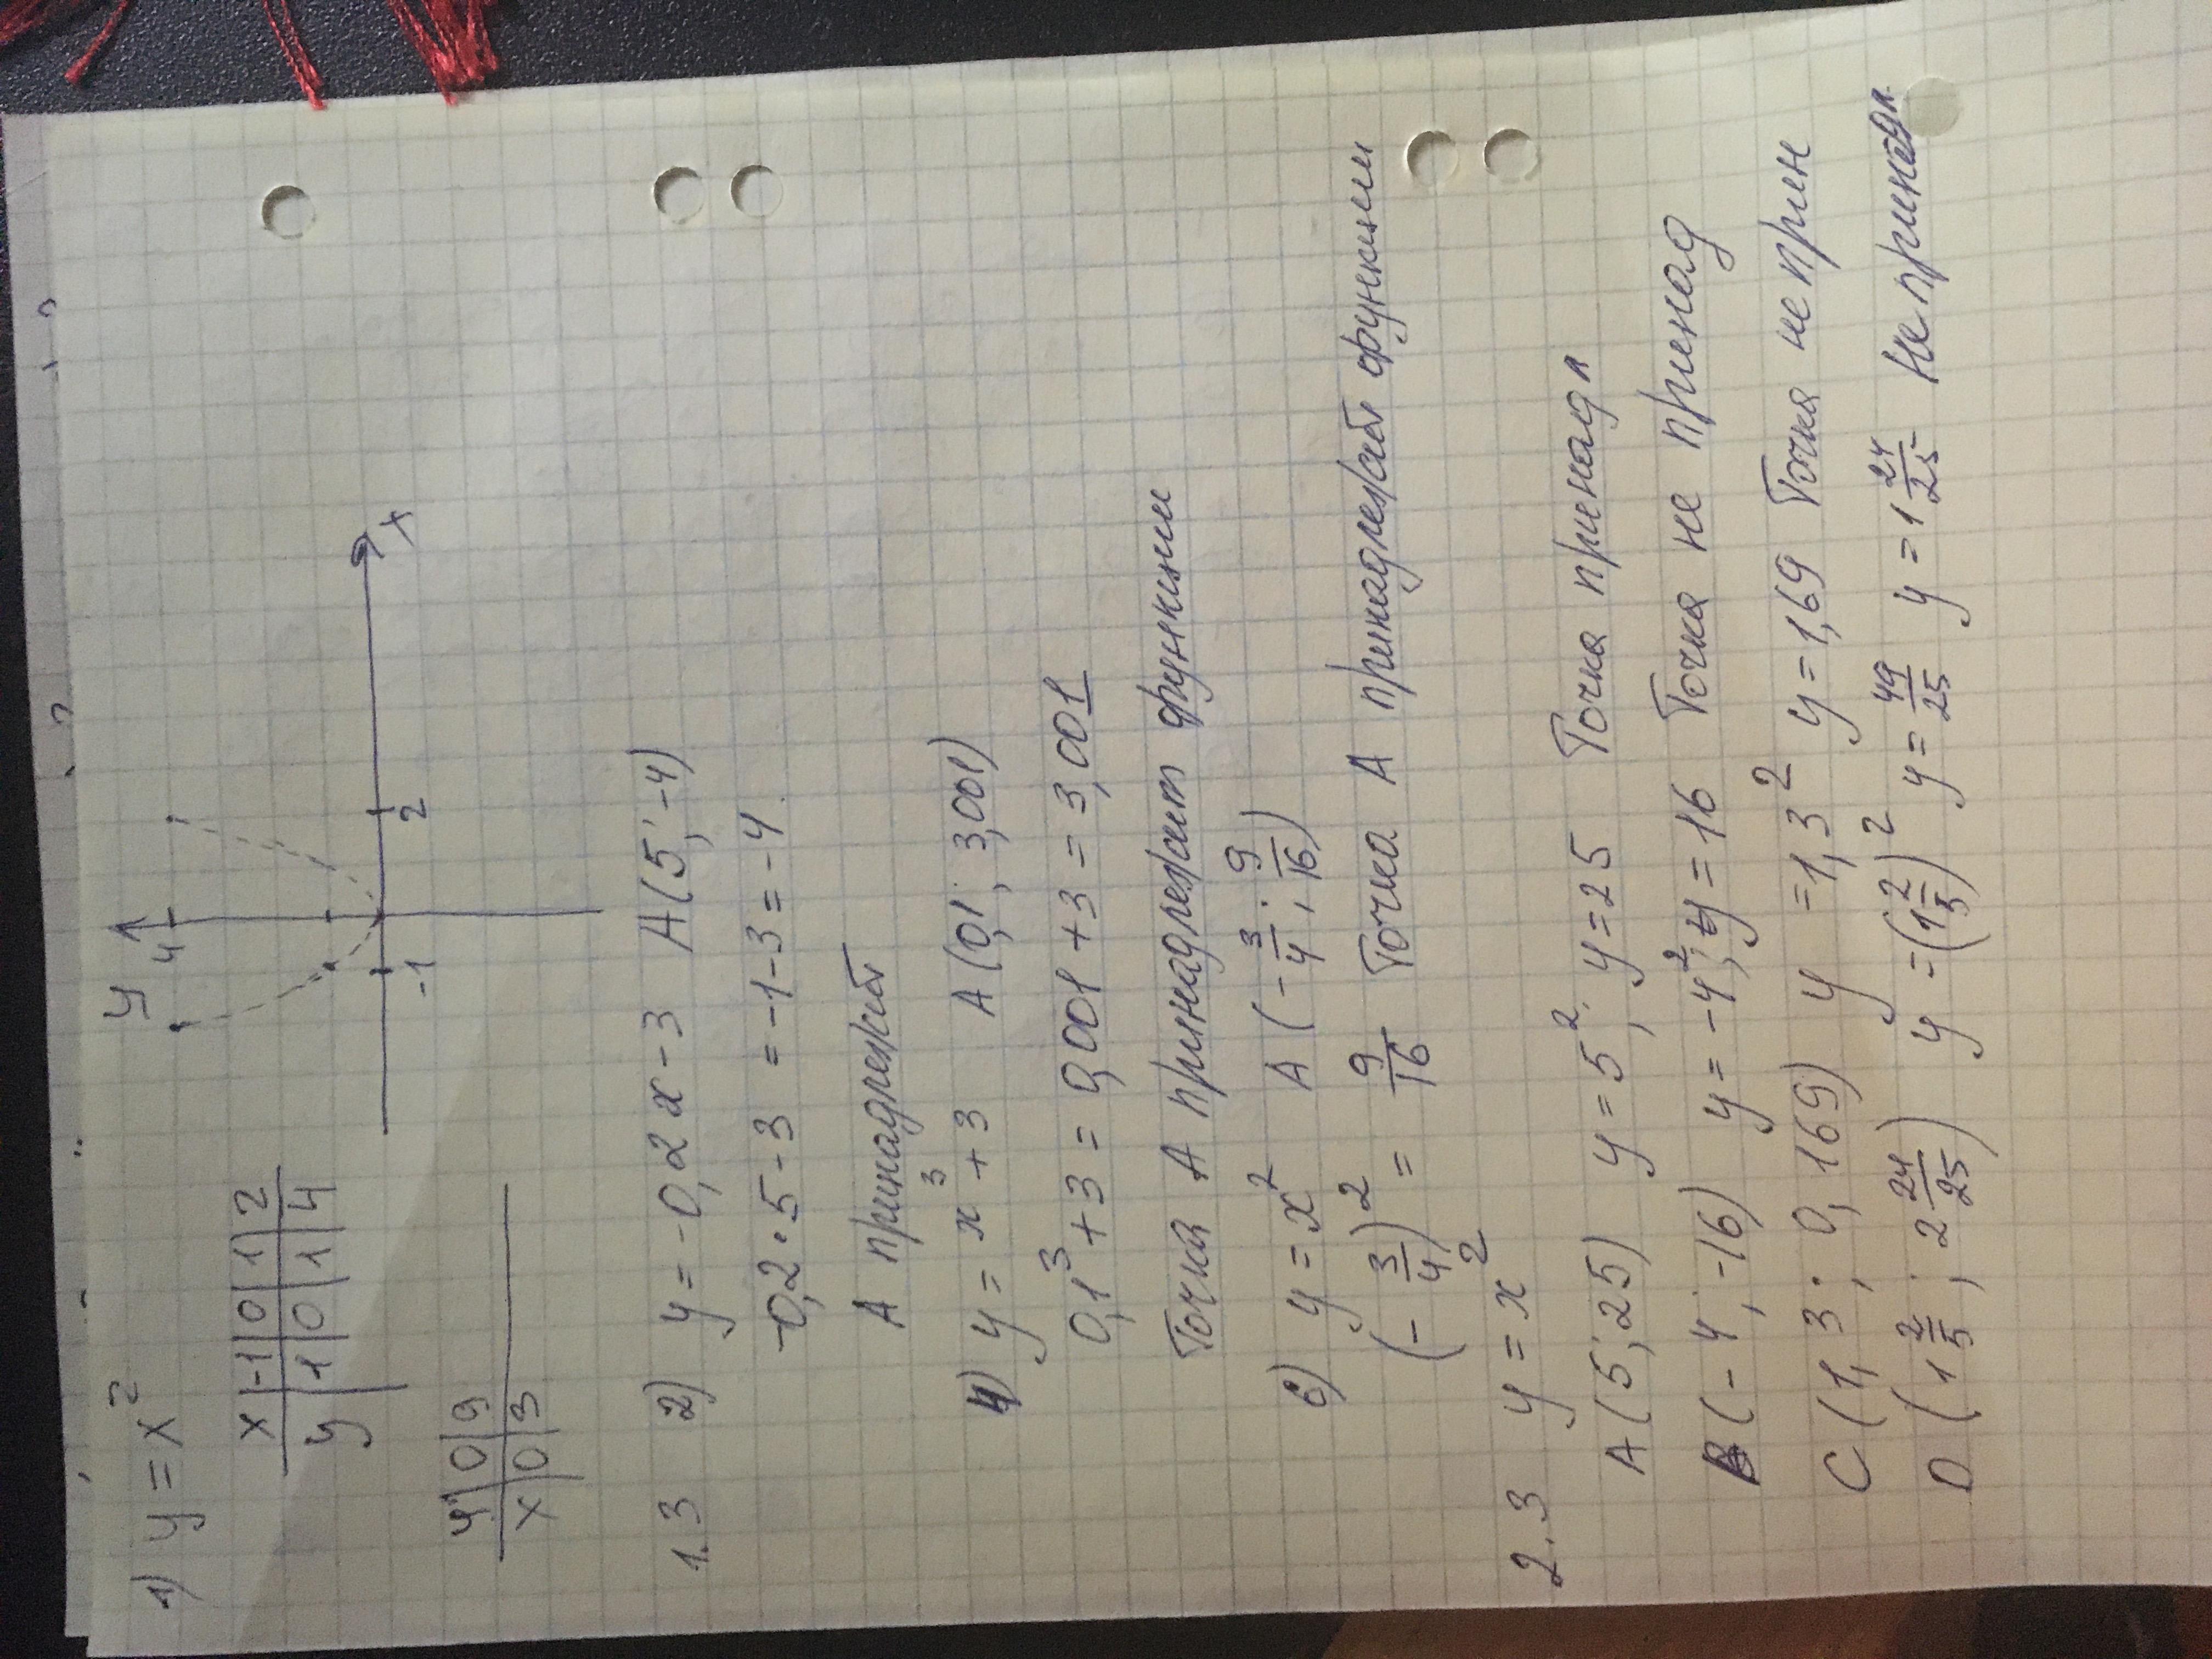 1) y = x²
x | -1 | 0 | 1 | 2
y | 1 | 0 | 1 | 4
y | 0 | 9
x | 0 | 3
y
4
-1
2
x
1.3 2) y = -0,2x - 3 A(5; -4)
-0,2·5 - 3 = -1 - 3 = -4.
A принадлежит
4) y = x³ + 3 A(0,1; 3,001)
0,1³ + 3 = 0,001 + 3 = 3,001
Точка A принадлежит функкции
6) y = x² A(-3/4; 9/16)
(-3/4)² = 9/16 Точка A принадлежит функкции
2.3 y = x²
A(5; 25) y = 5², y = 25 Точка принадл
B(-4; -16) y = -4²; y = 16 Точка не принад
C(1,3; 0,169) y = 1,3² y = 1,69 Точка не прин
D(1 2/5; 2 24/25) y = (1 2/5)² y = 49/25 y = 1 24/25 не принадл